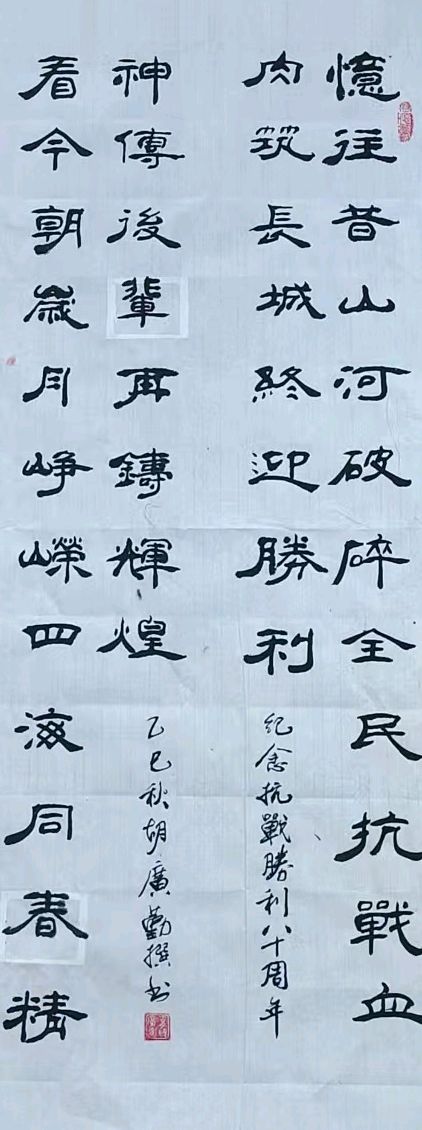 憶往昔山河破碎全民抗戰血
肉筑長城終迎勝利
紀念抗戰勝利八十周年
看今朝歲月崢嶸四海同春精
神傳後輩再鑄輝煌
乙巳秋胡廣勤撰书